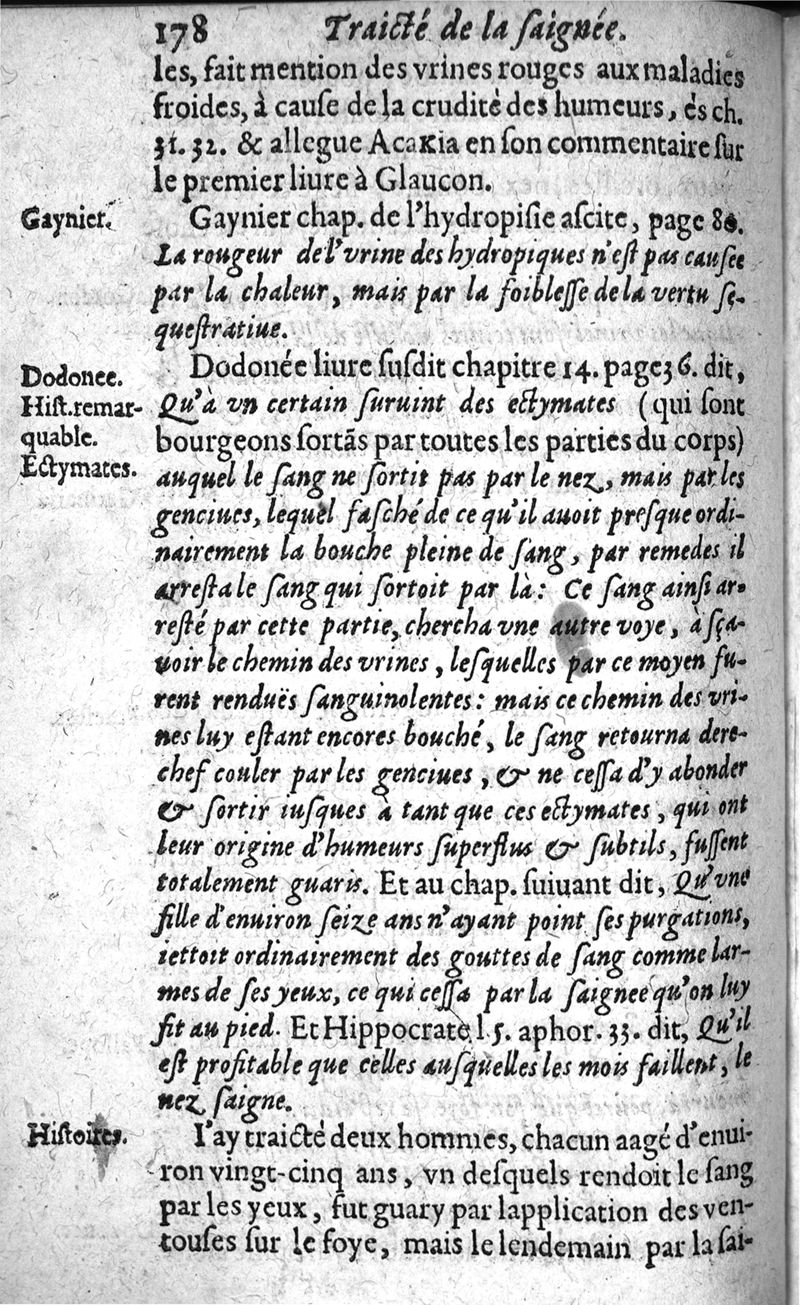 178 Traicté de la ſaignée.
les, fait mention des vrines rouges aux maladies
froides, à cauſe de la crudité des humeurs, és ch.
31. 32. & allegue Acakia en ſon commentaire ſur
le premier liure à Glaucon.
Gaynier.
Gaynier chap. de l'hydropiſie aſcite, page 80.
La rougeur de l'vrine des hydropiques n'eſt pas cauſee
par la chaleur, mais par la foibleſſe de la vertu ſe-
queſtratiue.
Dodonee.
Hiſt.remar-
quable.
Ectymates.
Dodonée liure ſuſdit chapitre 14. page 36. dit,
Qu'à vn certain ſuruint des ectymates (qui ſont
bourgeons ſortãs par toutes les parties du corps)
auquel le ſang ne ſortit pas par le nez, mais par les
genciues, lequel faſché de ce qu'il auoit preſque ordi-
nairement la bouche pleine de ſang, par remedes il
arreſta le ſang qui ſortoit par là: Ce ſang ainſi ar-
reſté par cette partie, chercha vne autre voye, à ſça-
uoir le chemin des vrines, leſquelles par ce moyen fu-
rent renduës ſanguinolentes: mais ce chemin des vri-
nes luy eſtant encores bouché, le ſang retourna dere-
chef couler par les genciues, & ne ceſſa d'y abonder
& ſortir iuſques à tant que ces ectymates, qui ont
leur origine d'humeurs ſuperflus & ſubtils, fuſſent
totalement guaris. Et au chap. ſuiuant dit, Qu'vne
fille d'enuiron ſeize ans n'ayant point ſes purgations,
iettoit ordinairement des gouttes de ſang comme lar-
mes de ſes yeux, ce qui ceſſa par la ſaignee qu'on luy
fit au pied. Et Hippocrate l 5. aphor. 33. dit, Qu'il
eſt profitable que celles auſquelles les mois faillent, le
nez ſaigne.
Hiſtoires.
I'ay traicté deux hommes, chacun aagé d'enui-
ron vingt-cinq ans, vn deſquels rendoit le ſang
par les yeux, fut guary par lapplication des ven-
touſes ſur le foye, mais le lendemain par la ſai-